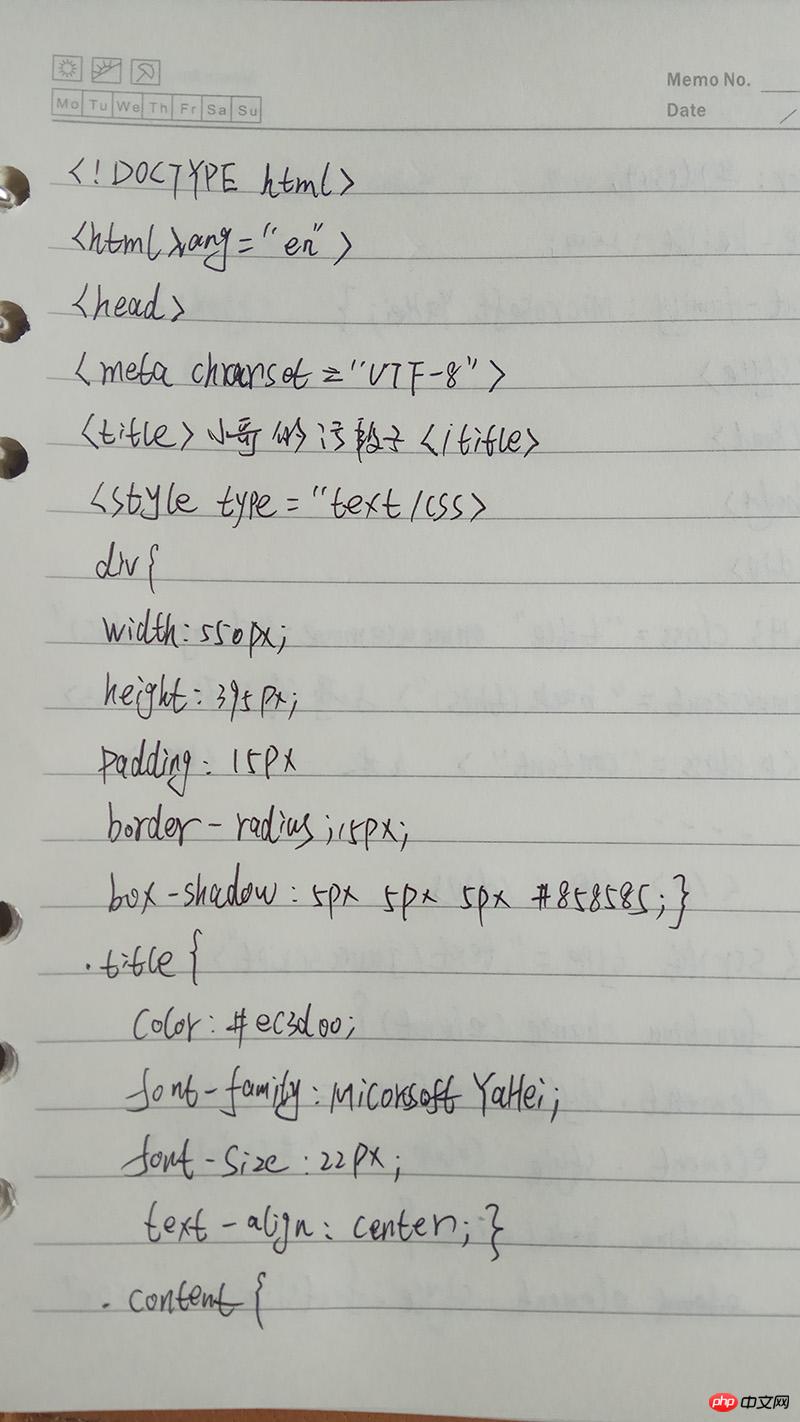 Memo No.
Mo Tu We Th Fr Sa Su
Date /
<!DOCTYPE html>
<html lang="en">
<head>
<meta charset="UTF-8">
<title>小哥的污段子</title>
<style type="text/css>
div{
width:550px;
height:395px;
padding:15px
border-radius;15px;
box-shadow:5px 5px 5px #858585;}
.title{
color:#ec3d00;
font-family:Micorsoft YaHei;
font-size:22px;
text-align:center;}
.content{
php中文网